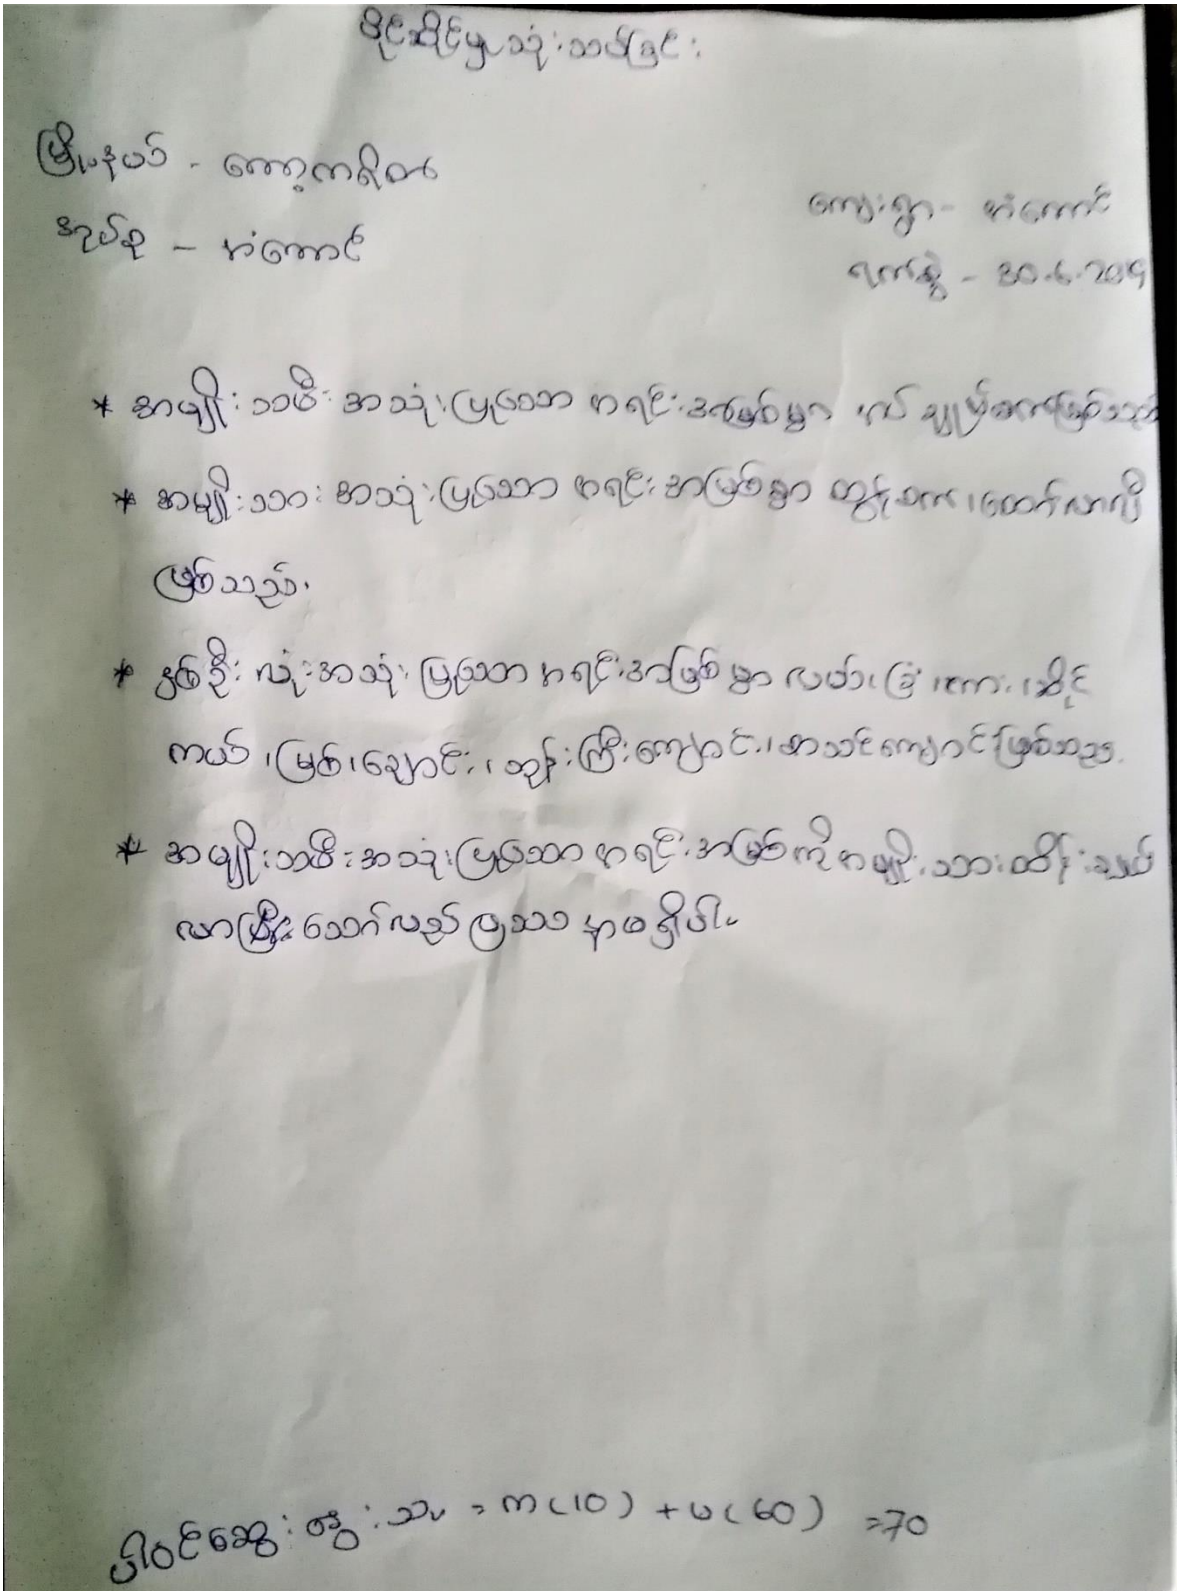 ပိုင်ဆိုင်မှု သုံးသပ်ခြင်း
မြို့နယ် - ကော့ကရိတ်
အုပ်စု - အံကောင်
ကျေးရွာ - အံကောင်
ရက်စွဲ - 30.6.2019
* အမျိုးသမီး အသုံးပြုသော အရင်းအမြစ်မှာ ချုပ်စက်ဖြစ်သည်
* အမျိုးသား အသုံးပြုသော အရင်းအမြစ်မှာ ထွန်စက်၊ ထော်လာဂျီ
ဖြစ်သည်.
* နှစ်ဦးလုံးအသုံးပြုသော အရင်းအမြစ်မှာ လယ်၊ ခြံ၊ ကား၊ ဆိုင်
ကယ်၊ မြစ်၊ ချောင်း၊ ဘုန်းကြီးကျောင်း၊ စာသင်ကျောင်းဖြစ်သည်.
* အမျိုးသမီးအသုံးပြုသော အရင်းအမြစ်ကို အမျိုးသားထိန်းချုပ်
လာပြီးသော်လည် ပြသနာမရှိပါ.
ပါဝင်ဆွေးနွေးသူ = က(10) + မ(60) =70